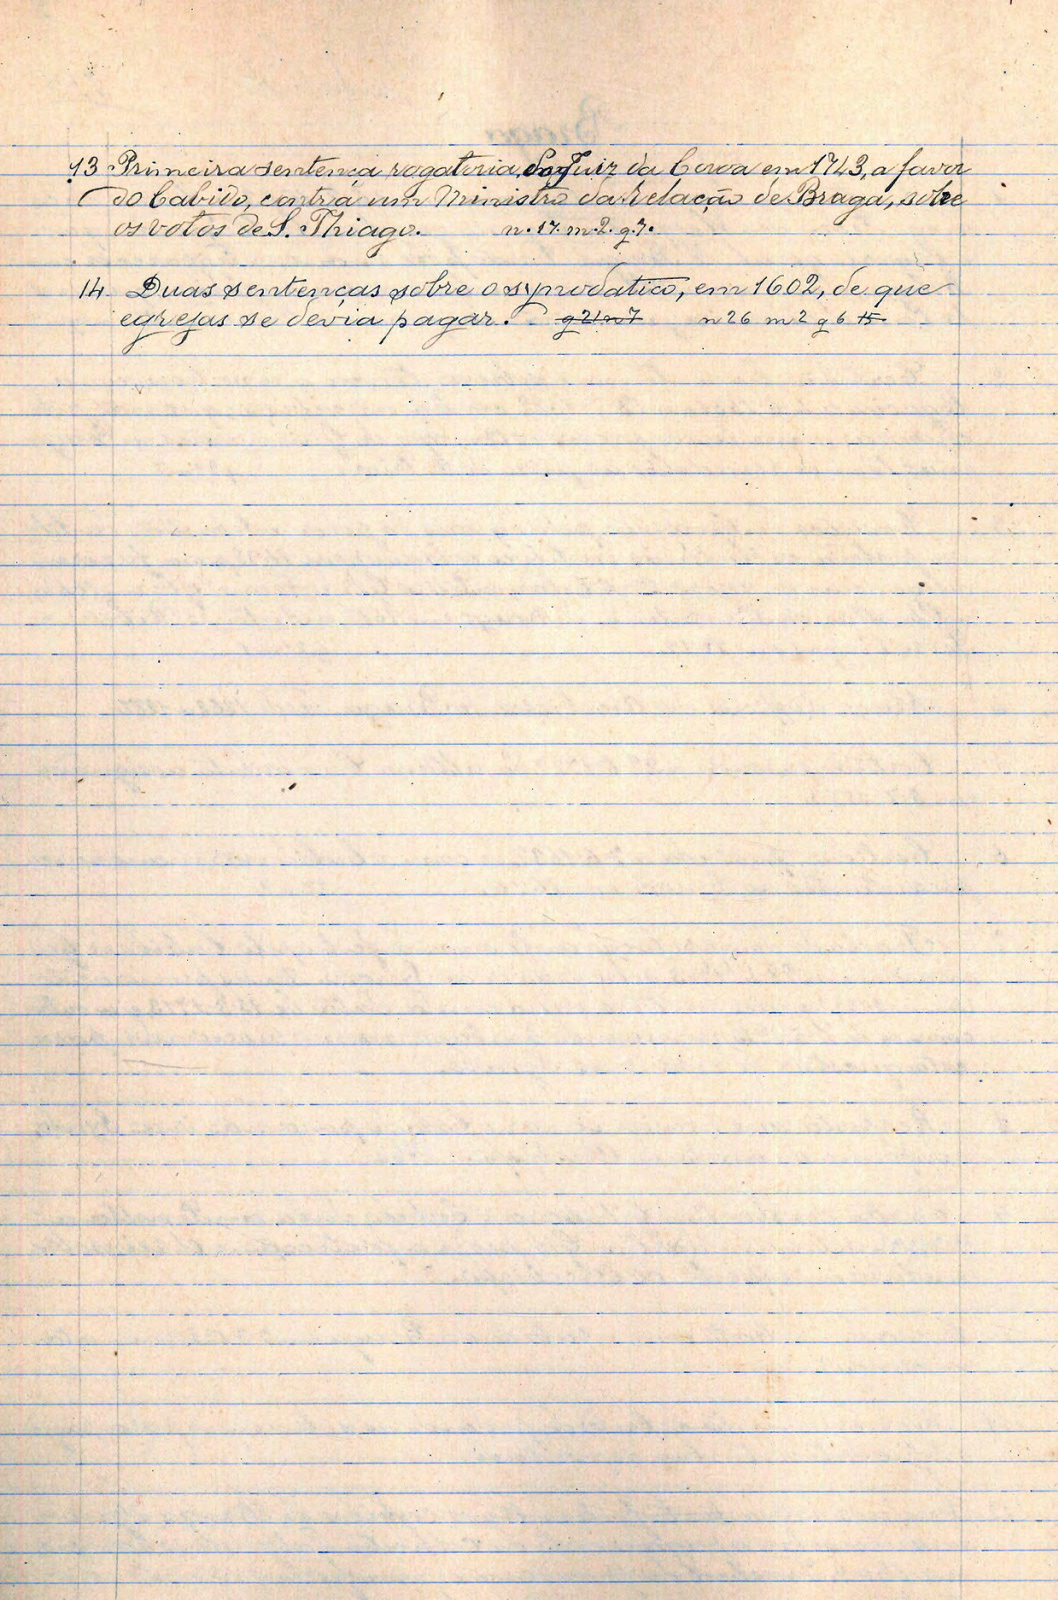 13 Primeira sentença rogatoria, do Juiz da Coroa em 1743, a favor
do Cabido, contra um Ministro da Relação de Braga, sobre
os votos de S. Thiago. n. 17. m. 2. g. 7.
14 Duas sentenças sobre o synodatico, em 1602, de que
egrejas se devia pagar. g 21 n 7 n 26 m 2 g 6 15